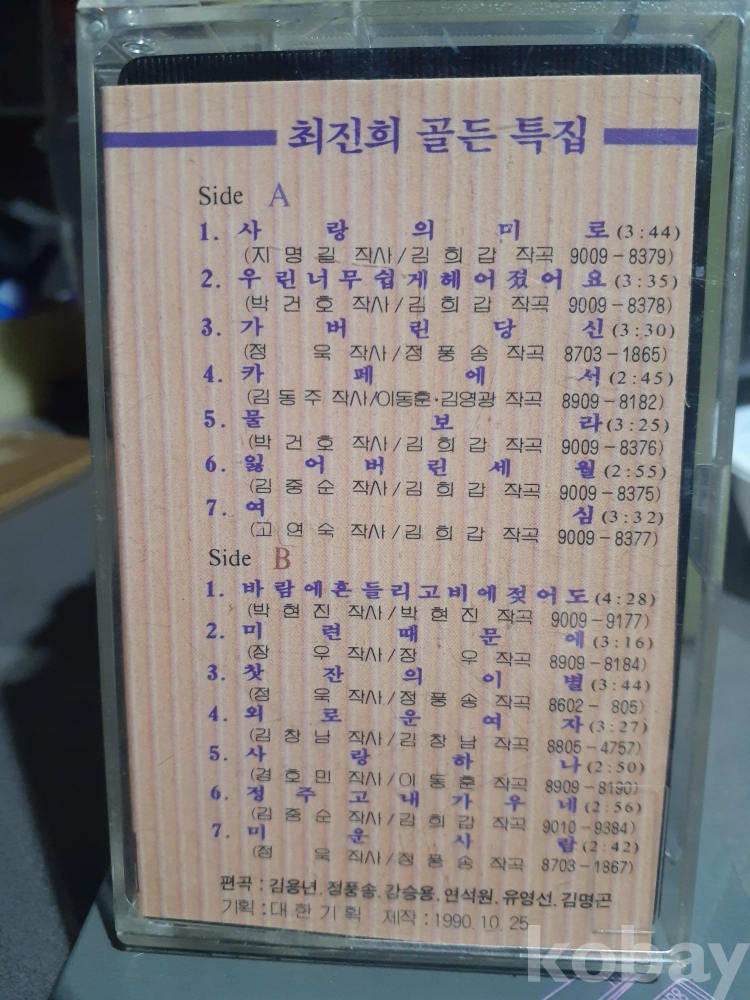 최진희 골든 특집
Side A
1. 사랑의미로(3:44)
(지명길 작사/김희갑 작곡 9009-8379)
2. 우린너무쉽게헤어졌어요(3:35)
(박건호 작사/김희갑 작곡 9009-8378)
3. 가버린당신(3:30)
(정욱 작사/정풍송 작곡 8703-1865)
4. 카페에서(2:45)
(김동주 작사/이동훈·김영광 작곡 8909-8182)
5. 물보라(3:25)
(박건호 작사/김희갑 작곡 9009-8376)
6. 잃어버린세월(2:55)
(김중순 작사/김희갑 작곡 9009-8375)
7. 여심(3:32)
(고연숙 작사/김희갑 작곡 9009-8377)
Side B
1. 바람에흔들리고비에젖어도(4:28)
(박현진 작사/박현진 작곡 9009-9177)
2. 미련때문에(3:16)
(장우 작사/장우 작곡 8909-8184)
3. 찻잔의이별(3:44)
(정욱 작사/정풍송 작곡 8602-805)
4. 외로운여자(3:27)
(김창남 작사/김창남 작곡 8805-4757)
5. 사랑하나(2:50)
(경호민 작사/이동훈 작곡 8909-8190)
6. 정주고내가우네(2:56)
(김중순 작사/김희갑 작곡 9010-9384)
7. 미운사람(2:42)
(정욱 작사/정풍송 작곡 8703-1867)
편곡 : 김용년. 정풍송. 강승용. 연석원. 유영선. 김명곤
기획 : 대한기획 제작 : 1990. 10. 25
kobay